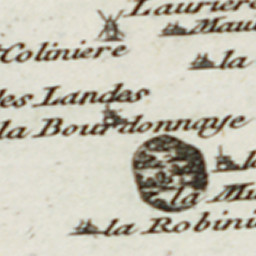 Lauriere
Mau
Coliniere
la
les Landes
la Bourdonnaye
la
la Mu
la Robini